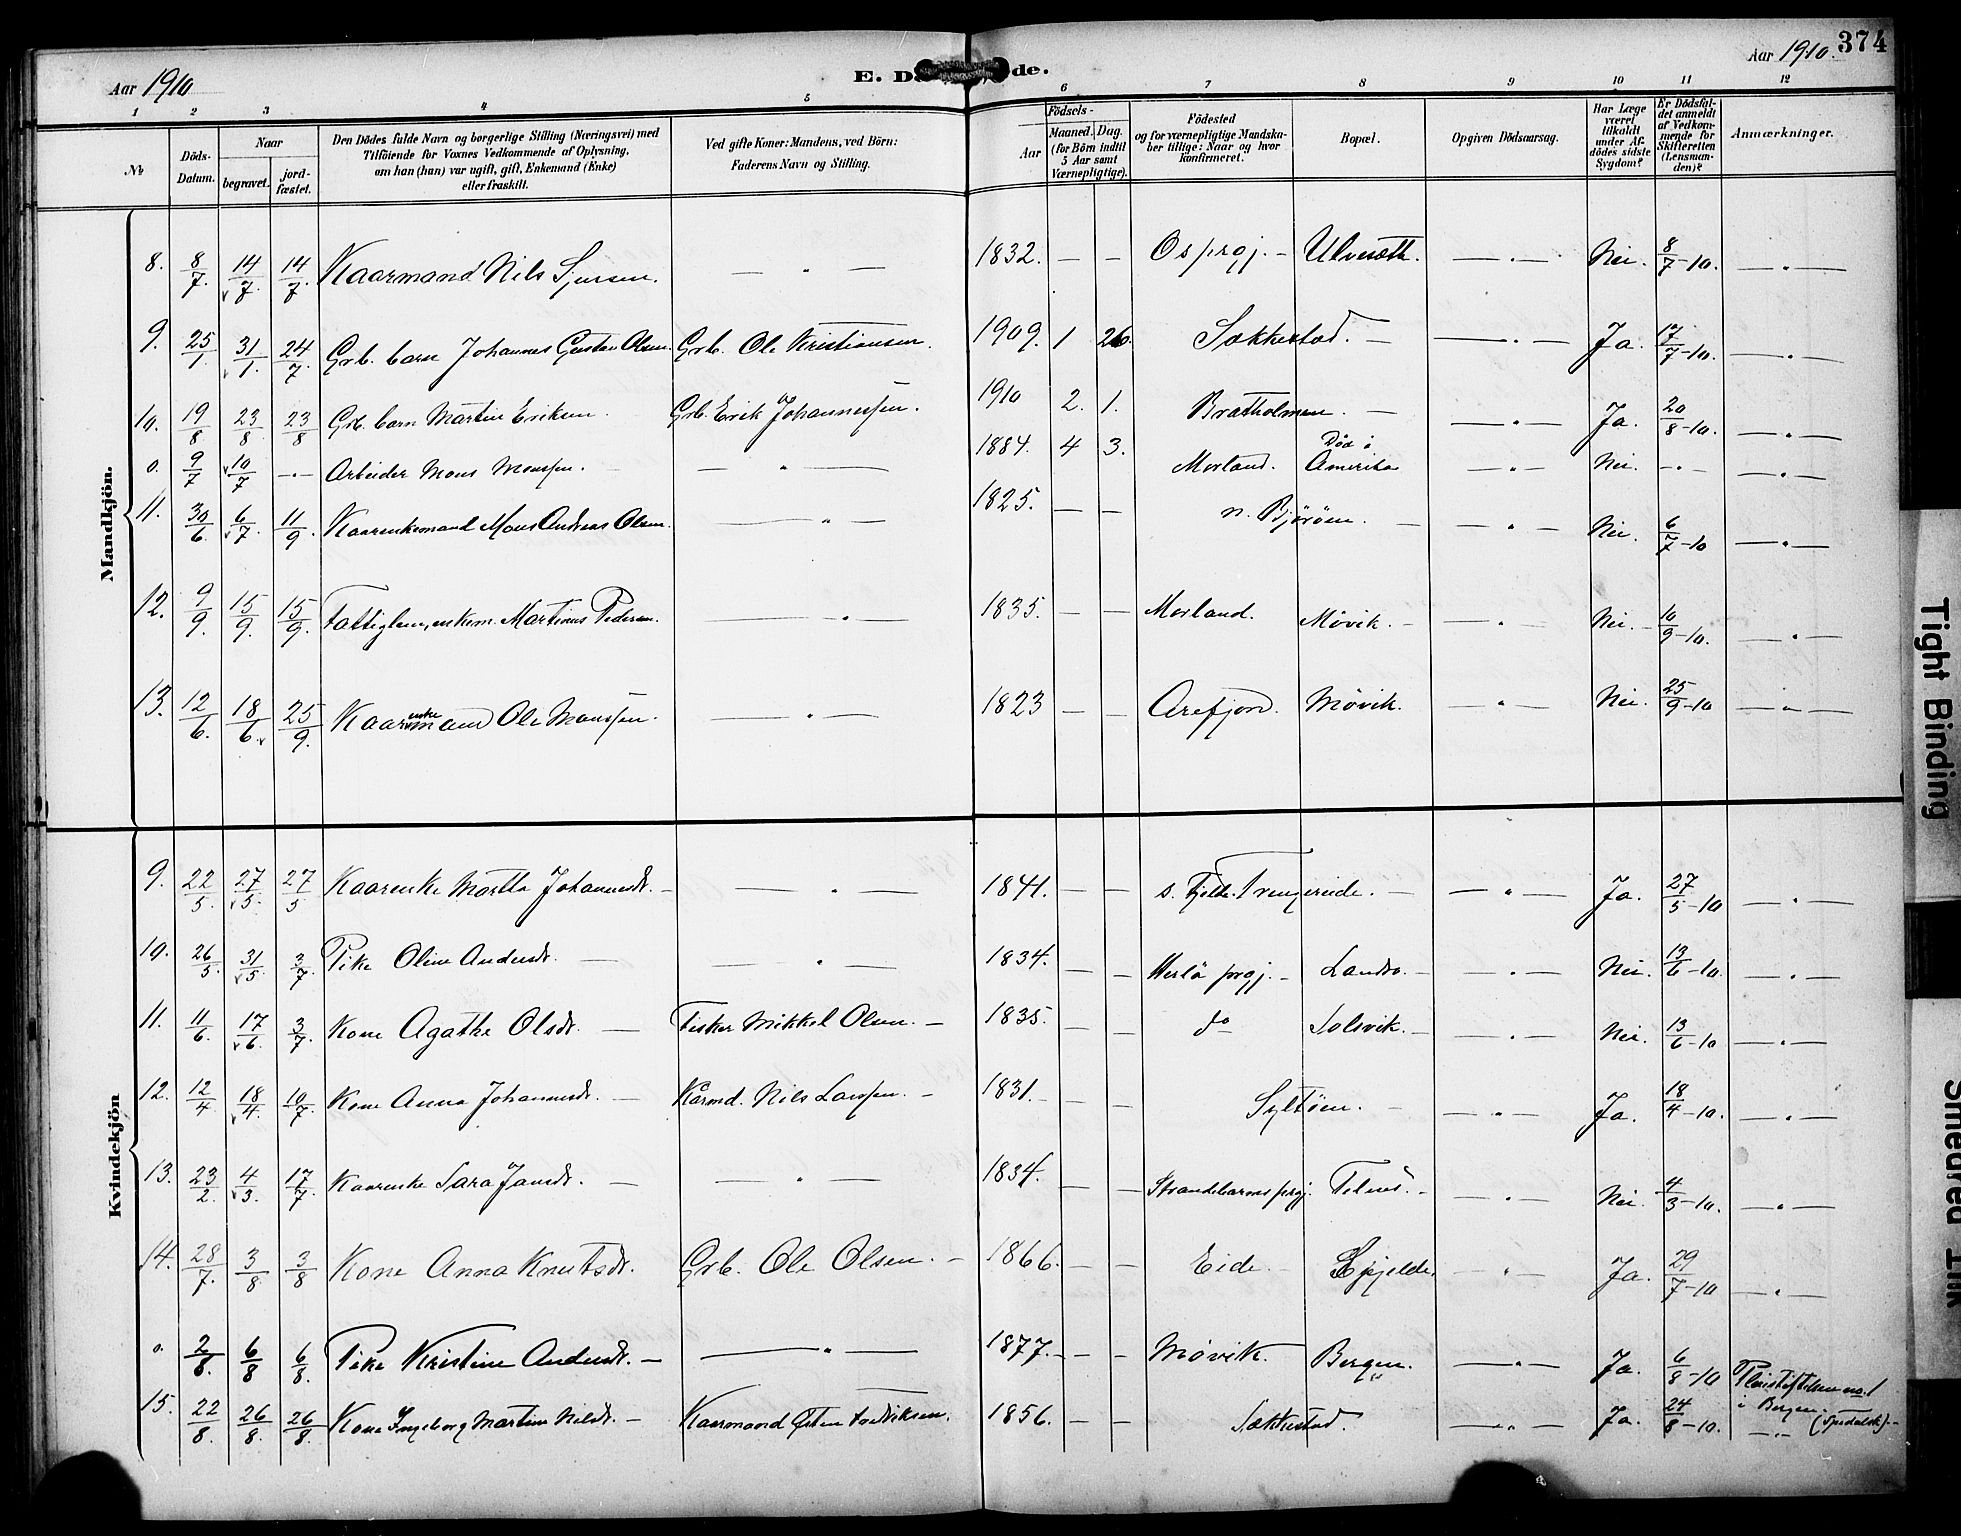 Aar 1910
E. Dö de.
Aar 1910. 374
1 2 3 4 5 6 7 8 9 10 11 12
No
Döds-Datum.
Naar
begravet.
jord-fæstet.
Den Dödes fulde Navn og borgerlige Stilling (Næringsvei) med
Tilföiende for Voxnes Vedkommende af Oplysning,
om han (hun) var ugift, gift, Enkemand (Enke)
eller fraskilt.
Ved gifte Koner: Mandens, ved Börn:
Faderens Navn og Stilling.
Födsels-
Aar
Maaned. Dag.
(for Börn indtil
5 Aar samt
Værnepligtige).
Födested
og for værnepligtige Mandska-
ber tillige: Naar og hvor
konfirmeret.
Bopæl.
Opgiven Dödsaarsag.
Har Læge
været
tilkaldt
under Af-
dödes sidste
Sygdom?
Er Dödsfal-
det anmeldt
af Vedkom-
mende for
Skifteretten
(Lensman-
den)?
Anmærkninger.
Mandkjön.
8. 8/7. 14/7. 14/7. Kaarmand Nils Sjursen. — " — 1832. — — Os prgj. — Ulveseth. — " — Nei. 8/7-10. — " —
9. 25/1. 31/1. 24/7 Grb. barn Johannes Gustav Olsen. Grb. Ole Kristiansen. 1909. 1 26. Sækkestad. — — " — Ja. 17/7-10. — " —
10. 19/8 23/8. 23/8 Grb. barn Martin Eriksen. Grb. Erik Johannessen. 1910 2. 1. Bratholmen. — — " — Ja. 20/8-10. — " —
0. 9/7 10/7 — " — Arbeider Mons Monssen. — " — 1884. 4 3. Morland. Död i Amerika — " — Nei. — " — — " —
11. 30/6. 6/7. 11/9. Kaarenkemand Mons Andreas Olsen. — " — 1825. — — n. Björöen. — — " — Nei. 6/7-10 — " —
12. 9/9. 15/9. 15/9. Fattiglem, enkem. Martinus Pedersen. — " — 1835. — — Morland. Mövik. — — " — Nei. — 10/9-10. — " —
13. 12/6. 18/6. 25/9. Kaarenkemand Ole Monssen. — " — 1823 — — Arefjord. Mövik. — " — Nei. 25/9-10 — " —
Kvindekjön
9. 22/5. 27/5. 27/5 Kaarenke Martha Johannesdr. — — " — 1841. — — s. Fjelde. Trengereide. — — " — Ja. 27/5-10 — " —
10. 26/5. 31/5. 3/7. Pike Oline Andersdr. — — " — 1834. — — Herlö prgj. — Landro. — — " — Nei. 13/6-10. — " —
11. 11/6. 17/6. 3/7. Kone Agathe Olsdr. — Fisker Mikkel Olsen. — 1835. — — do Solsvik. — — " — Nei. 13/6-10 — " —
12. 12/4. 18/4. 10/7. Kone Anna Johannesdr. — Kårmd. Nils Larssen. — 1831. — — Syltöen. — — " — Ja. 18/4-10. — " —
13. 23/2. 4/3. 17/7. Kaarenke Sara Jansdr. — — " — 1834. — — Strandebarms prgj. Telnes. — — " — Nei. 4/3-10. — " —
14. 28/7. 3/8 3/8 Kone Anna Knutsdr. Grb. Ole Olsen. — 1866. — — Eide. — Spjelde. — " — Ja. 29/7-10 — " —
0. 2/8. 6/8 6/8. Pike Kristine Andersdr. — — " — 1877. — — Mövik. Bergen. — " — Ja. 6/8-10 Pleiestiftelsen no. 1 i Bergen. (Spedalsk). —
15. 22/8. 26/8. 26/8. Kone Ingeborg Martine Nilsdr. — Kaarmand Östen Fredriksen. 1856. — — Sækkestad. — " — Ja. 24/8-10. — " —
Tight Binding
Smeared Ink